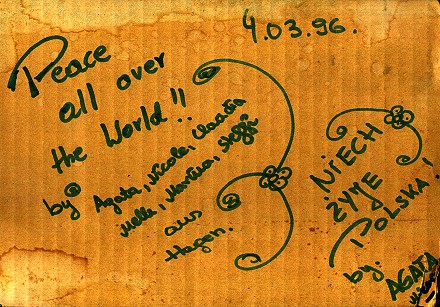 4.03.96.
Peace
all over
the World!!
by
Agata, Nicole, Claudia
Melle, Martina, Steffi
aus
Hagen.
NIECH
ŻYJE
POLSKA!
by:
AGATA